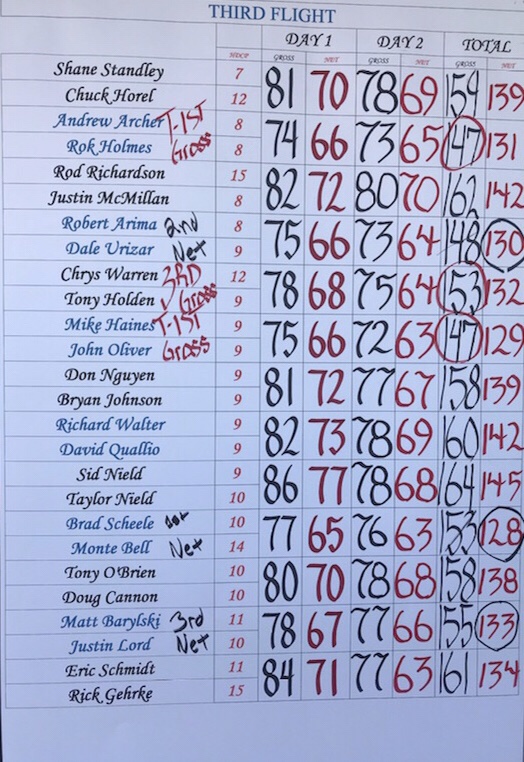 THIRD FLIGHT
DAY 1 DAY 2 TOTAL
HDCP GROSS NET GROSS NET GROSS NET
Shane Standley 7 81 70 78 69 159 139
Chuck Horel 12
Andrew Archer T-1ST 8 74 66 73 65 147 131
Rok Holmes Gross 8
Rod Richardson 15 82 72 80 70 162 142
Justin McMillan 8
Robert Arima 2nd 8 75 66 73 64 148 130
Dale Urizar Net 9
Chrys Warren 3RD 12 78 68 75 64 153 132
Tony Holden Gross 9
Mike Haines T-1ST 9 75 66 72 63 147 129
John Oliver Gross 9
Don Nguyen 9 81 72 77 67 158 139
Bryan Johnson 9
Richard Walter 9 82 73 78 69 160 142
David Quallio 9
Sid Nield 9 86 77 78 68 164 145
Taylor Nield 10
Brad Scheele 1st 10 77 65 76 63 153 128
Monte Bell Net 14
Tony O'Brien 10 80 70 78 68 158 138
Doug Cannon 10
Matt Barylski 3rd 11 78 67 77 66 155 133
Justin Lord Net 10
Eric Schmidt 11 84 71 77 63 161 134
Rick Gehrke 15